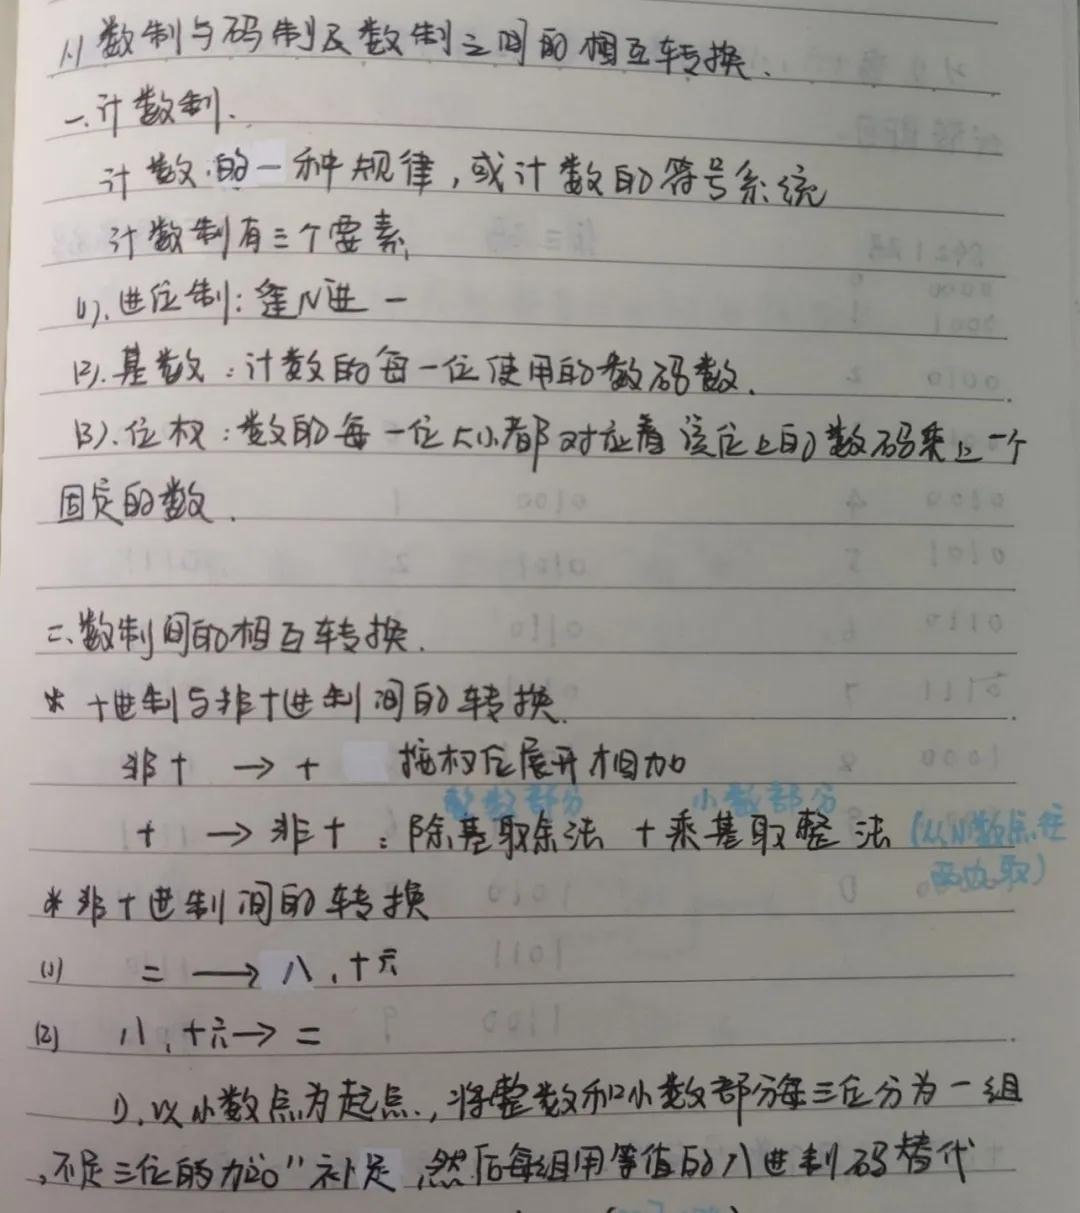 (1) 数制与码制及数制之间的相互转换.
一.计数制.
计数的一种规律,或计数的符号系统
计数制有三个要素
(1).进位制:逢N进一
(2).基数:计数的每一位使用的数码数.
(3).位权:数的每一位大小都对应着该位上的数码乘上一个
固定的数.
二.数制间的相互转换.
* 十进制与非十进制间的转换.
非十 → 十 按权位展开相加
整数部分 小数部分
十 → 非十:除基取余法 + 乘基取整法 (从小数点往
两边取)
* 非十进制间的转换
(1) 二 → 八,十六
(2) 八,十六→二
1).以小数点为起点.,将整数和小数部分每三位分为一组
,不足三位的加“0”补足,然后每组用等值的八进制码替代